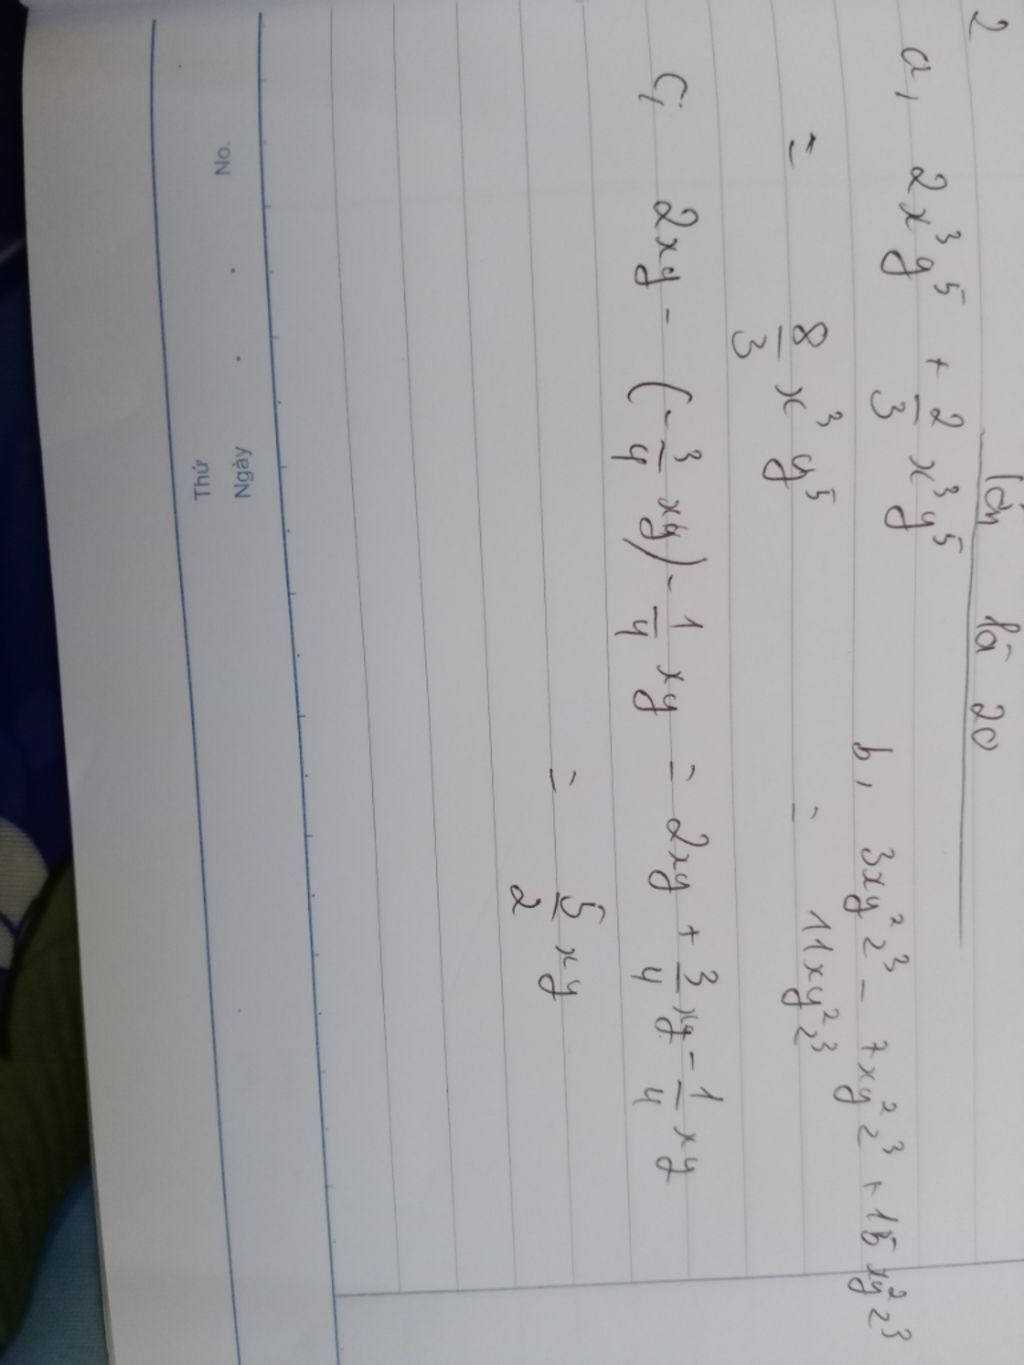 lớn là 20
2
a, 2x³y⁵ + 2/3 x³y⁵
= 8/3 x³y⁵
b, 3xy²z³ - 7xy²z³ + 15xy²z³
= 11xy²z³
c, 2xy - (-3/4 xy) - 1/4 xy = 2xy + 3/4 xy - 1/4 xy
= 5/2 xy
No.
Thứ
Ngày